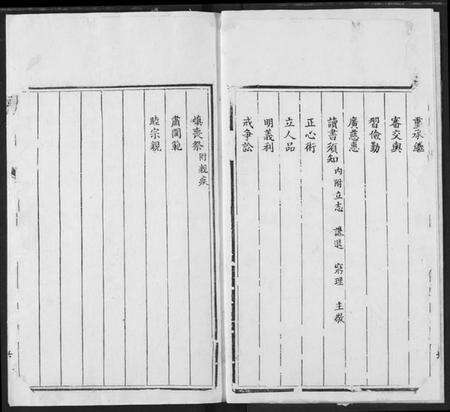 重承繼
審交與
習儉勤
廣慈惠
讀書須知 內附立志 謙退 窮理 主敬
正心術
立人品
明義利
戒爭訟
慎喪祭 附親疾
肅閫範
睦宗親